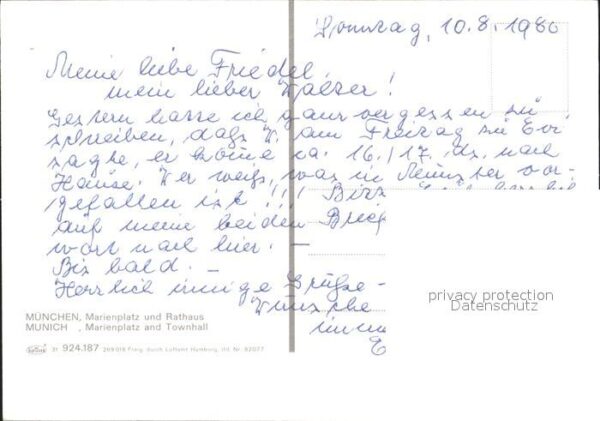 Sonntag, 10.8.1980
Meine liebe Friedel,
mein lieber Walter!
Gestern hatte ich ganz vergessen zu
schreiben, daß W. am Freitag zu
sagte, er ca. 16./17. ds. nach
Hause. Wer weiß, was in Münster vor-
gefallen ist!!!
auf meine beiden
wort nach hier. –
Bis bald. –
Herzlich innige Grüße –
Wünsche
privacy protection
Datenschutz
MÜNCHEN, Marienplatz und Rathaus
MUNICH , Marienplatz and Townhall
31 924.187